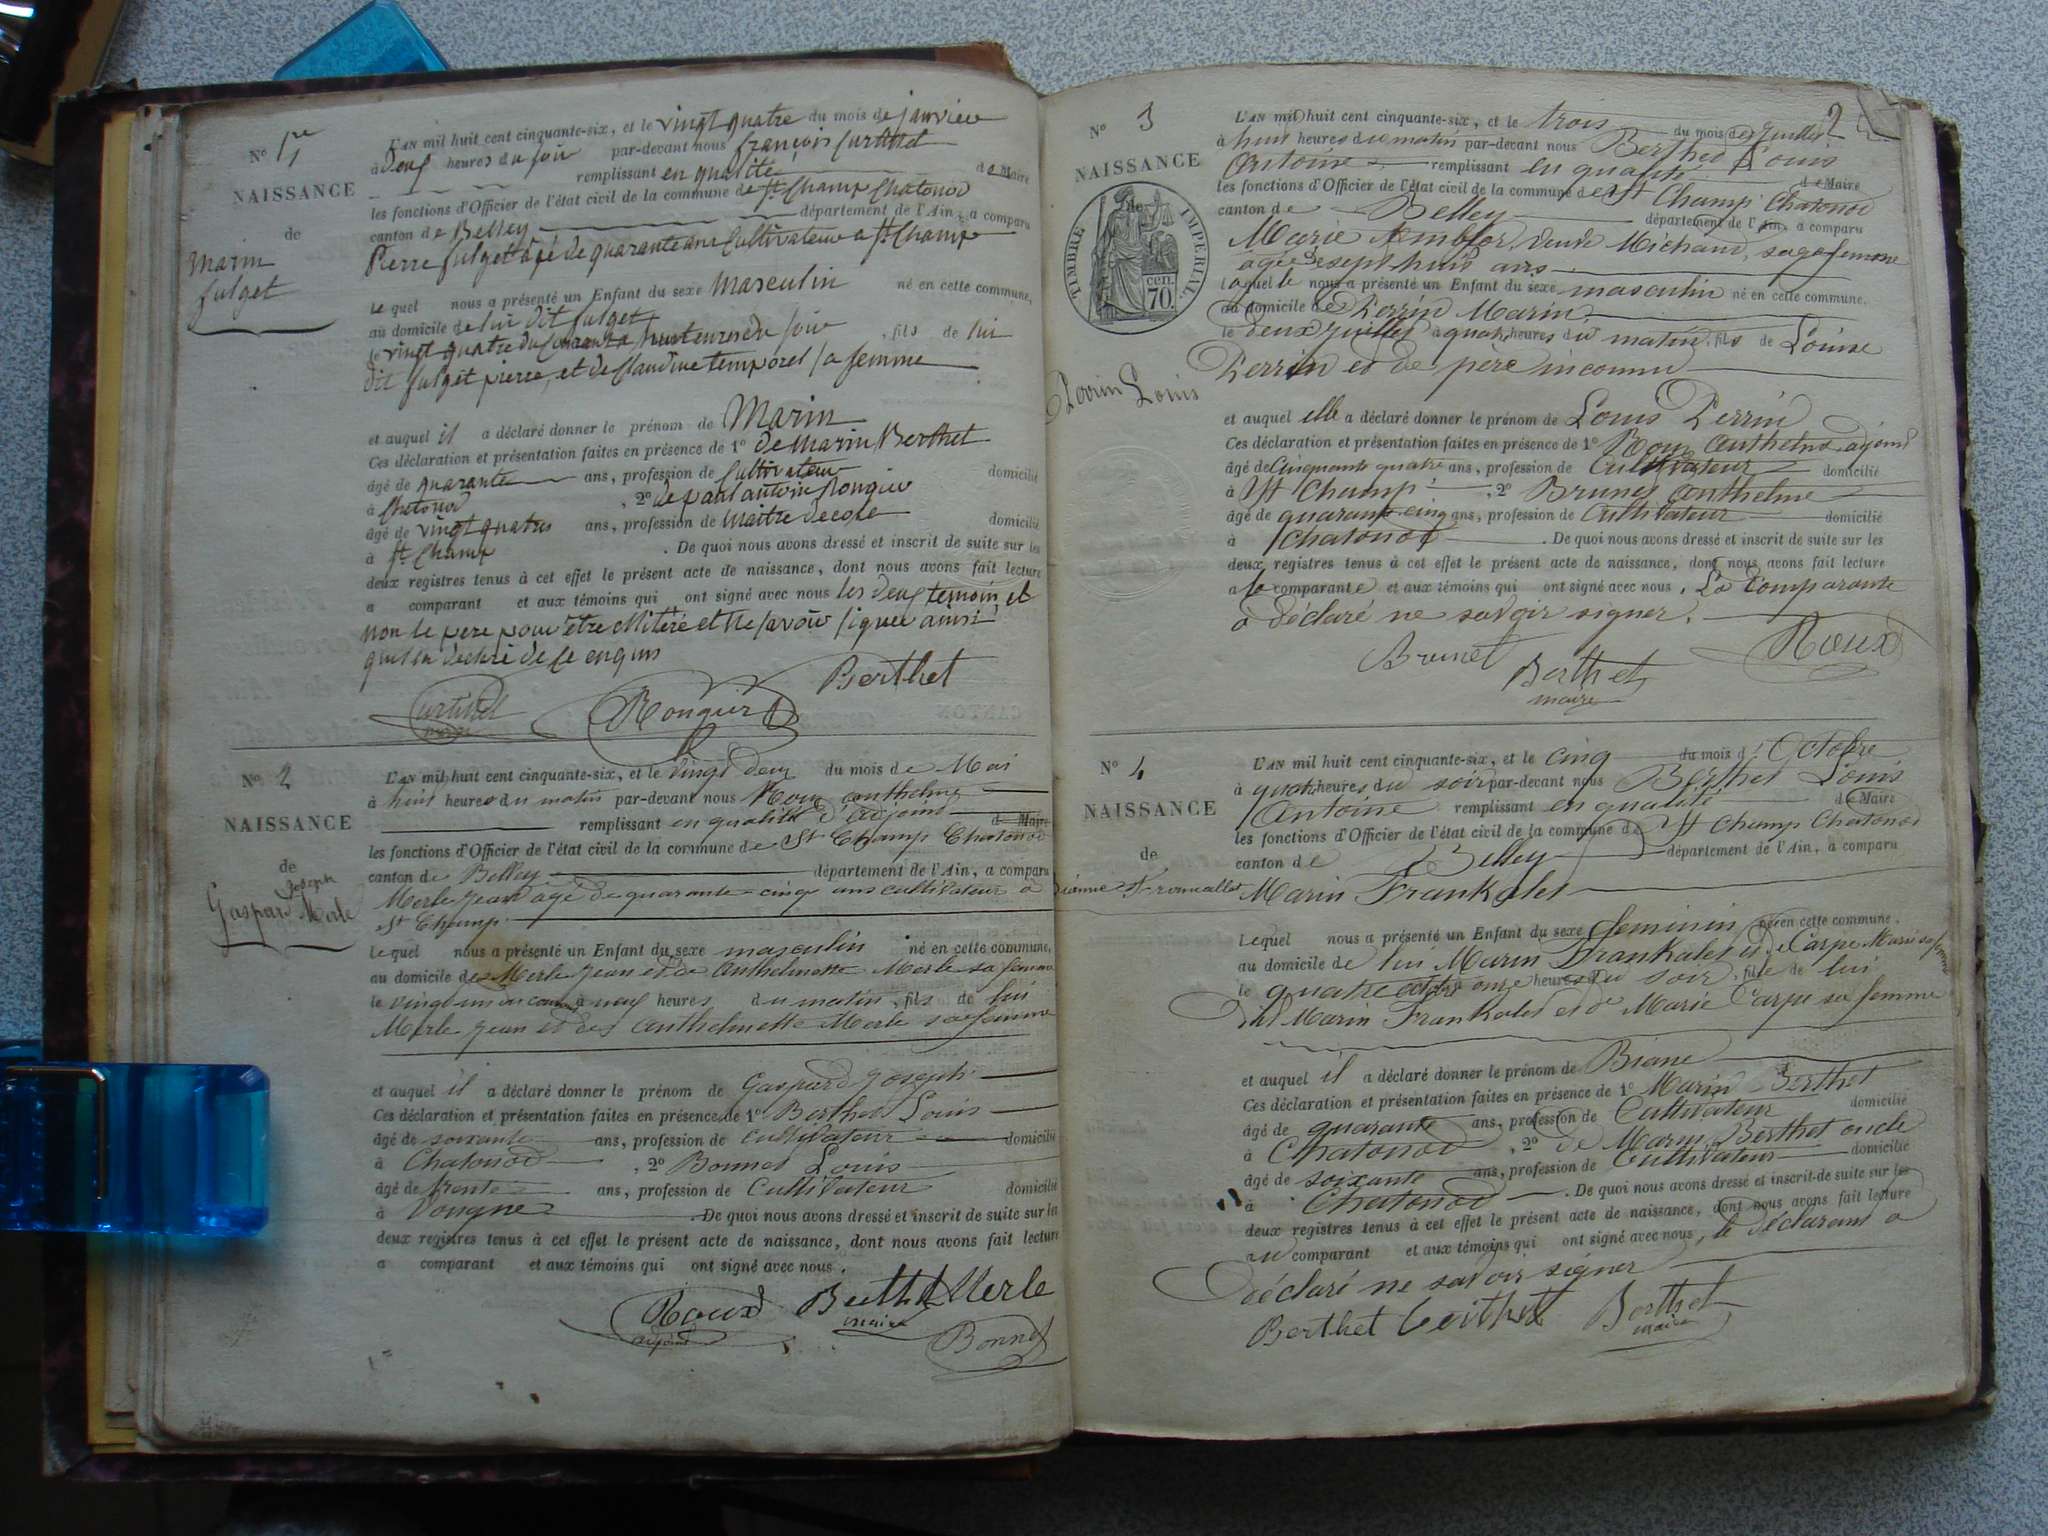 N° 1er
NAISSANCE
de
Marin
fulget
L'AN mil huit cent cinquante-six, et le vingt quatre du mois de janvier
à Deuf heures du soir par-devant nous françois
remplissant en qualité de Maire
les fonctions d'Officier de l'état civil de la commune de St Champ Chatonod
canton de Belley département de l'Ain, a comparu
Pierre fulget agé de quarante ans Cultivateur a St Champ
Lequel nous a présenté un Enfant du sexe masculin né en cette commune,
au domicile de lui dit fulget
le vingt quatre du Courant a huit eures du soir, fils de lui
dit fulget pierre, et de Claudine temporel sa femme
et auquel il a déclaré donner le prénom de Marin
Ces déclaration et présentation faites en présence de 1° de Marin Berthet
âgé de quarante ans, profession de Cultivateur domicilié
à Chatonod, 2° de paul antoin Rougier
âgé de vingt quatre ans, profession de Maitre decole domicilié
à St Champ. De quoi nous avons dressé et inscrit de suite sur les
deux registres tenus à cet effet le présent acte de naissance, dont nous avons fait lecture
a comparant et aux témoins qui ont signé avec nous les deux temoin et
non le pere pour être illitéré et ne savoir signer ainsi
de ce enquis
Berthet
Rougier
N° 2
NAISSANCE
de
Joseph
Gaspard Merle
L'AN mil huit cent cinquante-six, et le vingt deux du mois de Mai
à huit heures du matin par-devant nous Roux anthelme
remplissant en qualité d'adjoint de Maire
les fonctions d'Officier de l'état civil de la commune de St Champ Chatonod
canton de Belley département de l'Ain, a comparu
Merle Jean agé de quarante-cinq ans cultivateur a
St Champ
Lequel nous a présenté un Enfant du sexe masculin né en cette commune,
au domicile de Merle Jean et de Anthelmette Merle sa femme
le vingt un du courant à neuf heures du matin, fils de lui
Merle Jean et de Anthelmette Merle sa femme
et auquel il a déclaré donner le prénom de Gaspard Joseph
Ces déclaration et présentation faites en présence de 1° Berthet Louis
âgé de soixante ans, profession de Cultivateur domicilié
à Chatonod, 2° Bonnet Louis
âgé de trente ans, profession de Cultivateur domicilié
à Vongne. De quoi nous avons dressé et inscrit de suite sur les
deux registres tenus à cet effet le présent acte de naissance, dont nous avons fait lecture
a comparant et aux témoins qui ont signé avec nous.
Roux Berthet Merle
adjoint maire
Bonnet
2
N° 3
NAISSANCE
de
TIMBRE IMPERIAL
70 cen.
Perrin Louis
L'AN mil huit cent cinquante-six, et le trois du mois de Juillet
à huit heures du matin par-devant nous Berthet Louis
Antoine remplissant en qualité de Maire
les fonctions d'Officier de l'état civil de la commune de St Champ Chatonod
canton de Belley département de l'Ain, a comparu
Marie veuve Michaud, sage femme
agée de ans
Laquelle nous a présenté un Enfant du sexe masculin né en cette commune,
au domicile de Perrin Marin
le deux Juillet à quatre heures du matin, fils de Louise
Perrin et de pere inconnu
et auquel elle a déclaré donner le prénom de Louis Perrin
Ces déclaration et présentation faites en présence de 1° Roux Anthelme adjoint
âgé de Cinquante quatre ans, profession de Cultivateur domicilié
à St Champ, 2° Brunet Anthelme
âgé de quarante cinq ans, profession de Cultivateur domicilié
à Chatonod. De quoi nous avons dressé et inscrit de suite sur les
deux registres tenus à cet effet le présent acte de naissance, dont nous avons fait lecture
a la comparante et aux témoins qui ont signé avec nous. La Comparante
a déclaré ne savoir signer.
Brunet Berthet Roux
maire
N° 4
NAISSANCE
de
L'AN mil huit cent cinquante-six, et le cinq du mois d'Octobre
à quatre heures du soir par-devant nous Berthet Louis
Antoine remplissant en qualité de Maire
les fonctions d'Officier de l'état civil de la commune de St Champ Chatonod
canton de Belley département de l'Ain, a comparu
Marin Frankalet
Lequel nous a présenté un Enfant du sexe feminin né en cette commune,
au domicile de lui Marin Frankalet et de Carpe Marie sa femme
le quatre octobre onze heures du soir, fille de lui
dit Marin Frankalet et de Marie Carpe sa femme
et auquel il a déclaré donner le prénom de Biane
Ces déclaration et présentation faites en présence de 1° Marin Berthet
âgé de quarante ans, profession de Cultivateur domicilié
à Chatonod, 2° de Marin Berthet oncle
âgé de soixante ans, profession de Cultivateur domicilié
à Chatonod. De quoi nous avons dressé et inscrit de suite sur les
deux registres tenus à cet effet le présent acte de naissance, dont nous avons fait lecture
au comparant et aux témoins qui ont signé avec nous, le déclarant a
déclaré ne savoir signer
Berthet Berthet Berthet
maire